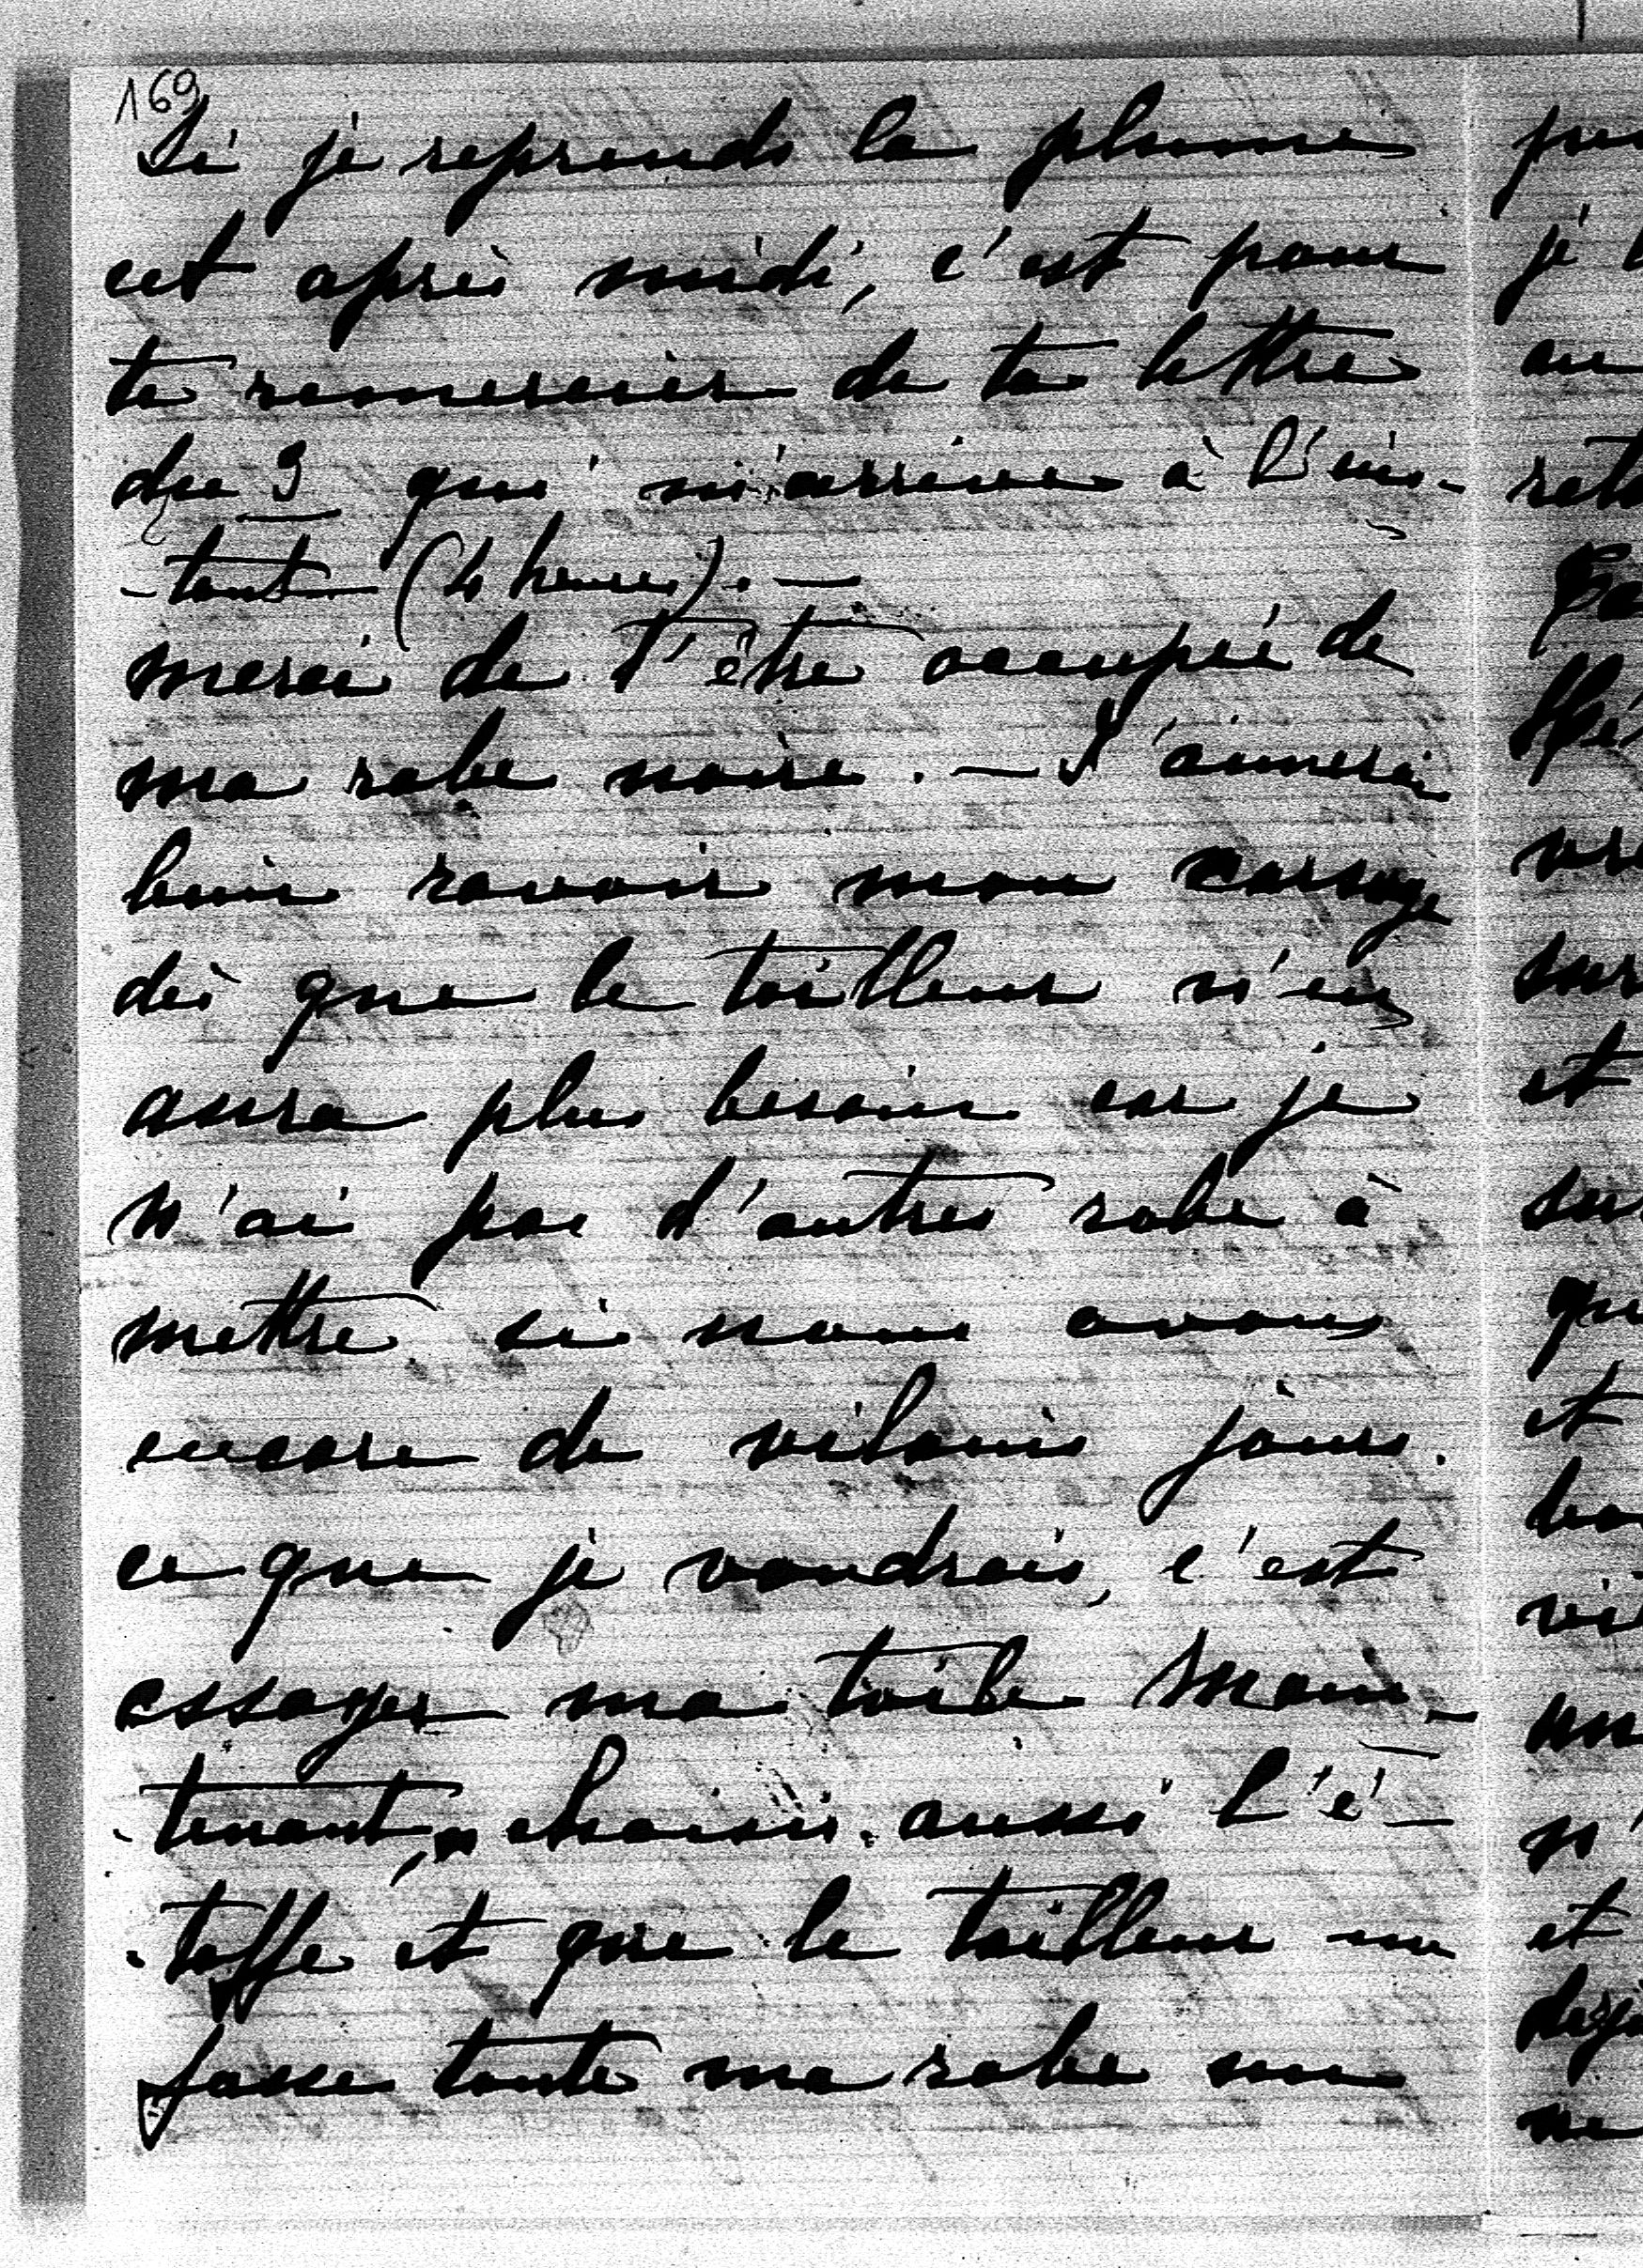 169
Si je reprends la plume
cet après midi, c'est pour
te remercier de ta lettre
du 3 qui m'arrive à l'ins-
-tant (4 heures). —
merci de t'être occupée de
ma robe noire. — J'aimerais
bien ravoir mon corsage
dès que le tailleur n'en
aura plus besoin car je
n'ai pas d'autres robe à
mettre si nous avons
encore de vilains jours.
ce que je voudrais, c'est
essayer ma toile main-
-tenant, choisir aussi l'é-
-toffe et que le tailleur me
fasse toute ma robe sur